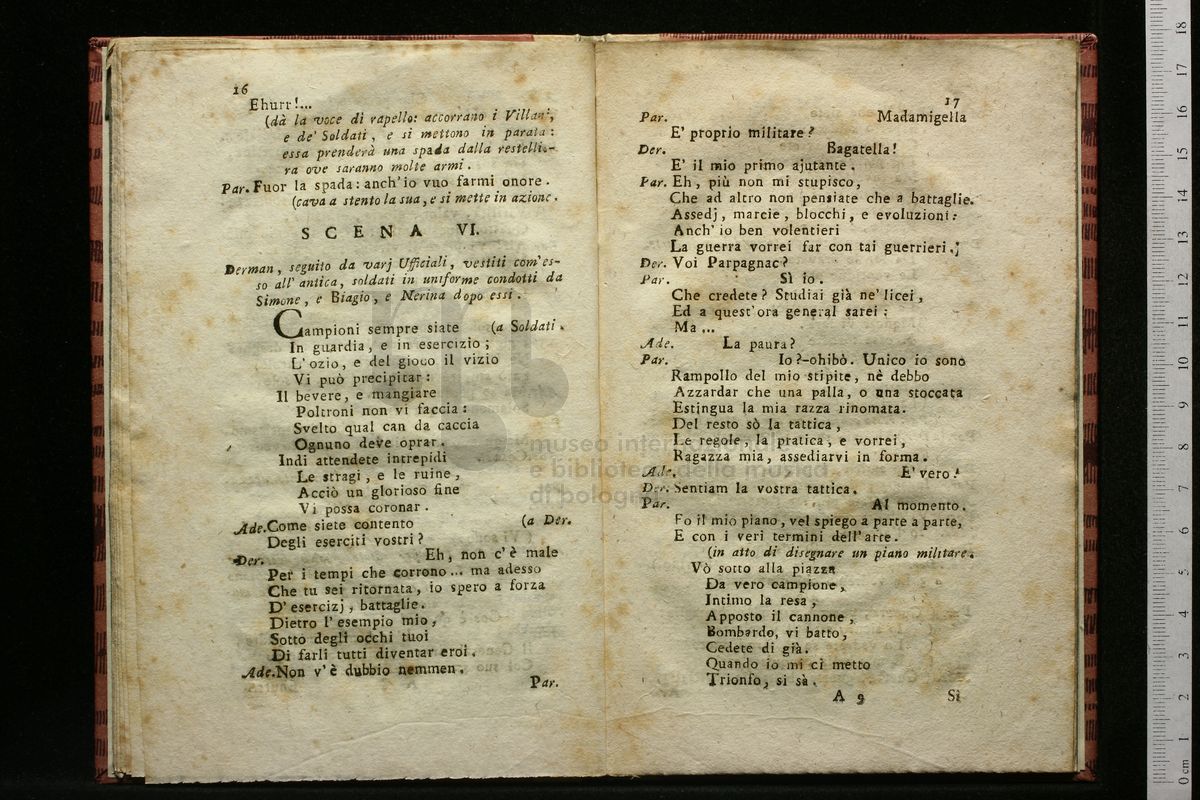 16
Ehurr!...
(dà la voce di rapello: accorrano i Villani,
e de' Soldati, e si mettono in parata:
essa prenderà una spada dalla restellie-
ra ove saranno molte armi.
Par. Fuor la spada: anch'io vuo farmi onore.
(cava a stento la sua, e si mette in azione.
SCENA VI.
Derman, seguito da varj Ufficiali, vestiti com'es-
so all' antica, soldati in uniforme condotti da
Simone, e Biagio, e Nerina dopo essi.
Campioni sempre siate (a Soldati.
In guardia, e in esercizio;
L'ozio, e del gioco il vizio
Vi può precipitar:
Il bevere, e mangiare
Poltroni non vi faccia:
Svelto qual can da caccia
Ognuno deve oprar.
Indi attendete intrepidi
Le stragi, e le ruine,
Acciò un glorioso fine
Vi possa coronar.
Ade. Come siete contento (a Der.
Degli eserciti vostri?
Der. Eh, non c'è male
Per i tempi che corrono... ma adesso
Che tu sei ritornata, io spero a forza
D' esercizj, battaglie.
Dietro l'esempio mio,
Sotto degli occhi tuoi
Di farli tutti diventar eroi.
Ade. Non v'è dubbio nemmen.
Par.
17
Par. Madamigella
E' proprio militare?
Der. Bagatella!
E' il mio primo ajutante.
Par. Eh, più non mi stupisco,
Che ad altro non pensiate che a battaglie.
Assedj, marcie, blocchi, e evoluzioni:
Anch' io ben volentieri
La guerra vorrei far con tai guerrieri.
Der. Voi Parpagnac?
Par. Sì io.
Che credete? Studiai già ne' licei,
Ed a quest'ora general sarei:
Ma ...
Ade. La paura?
Par. Io?-ohibò. Unico io sono
Rampollo del mio stipite, nè debbo
Azzardar che una palla, o una stoccata
Estingua la mia razza rinomata.
Del resto sò la tattica,
Le regole, la pratica, e vorrei,
Ragazza mia, assediarvi in forma.
Ade. E' vero!
Der. Sentiam la vostra tattica.
Par. Al momento.
Fo il mio piano, vel spiego a parte a parte,
E con i veri termini dell'arte.
(in atto di disegnare un piano militare.
Vò sotto alla piazza
Da vero campione,
Intimo la resa,
Apposto il cannone,
Bombardo, vi batto,
Cedete di già.
Quando io mi ci metto
Trionfo, si sà.
A 9 Sì
museo
e biblioteca della musica
di bologna
0 cm 1 2 3 4 5 6 7 8 9 10 11 12 13 14 15 16 17 18